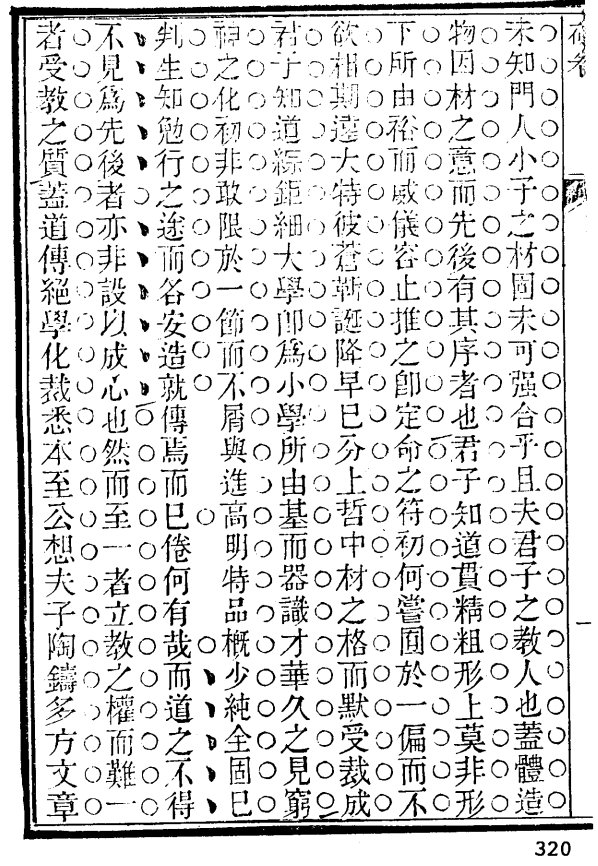 未知門人小子之材固未可强合乎且夫君子之教人也蓋體造
物因材之意而先後有其序者也君子知道貫精粗形上莫非形
下所由裕而威儀容止推之卽定命之符初何嘗囿於一偏而不
欲相期遠大特彼蒼靳誕降早已分上哲中材之格而默受裁成
君子知道綜鉅細大學卽爲小學所由基而器識才華久之見窮
神之化初非敢限於一節而不屑與進高明特品概少純全固已
判生知勉行之途而各安造就傳焉而已倦何有哉而道之不得
不見爲先後者亦非設以成心也然而至一者立教之權而難一
者受教之質蓋道傳絕學化裁悉本至公想夫子陶鑄多方文章
一
320